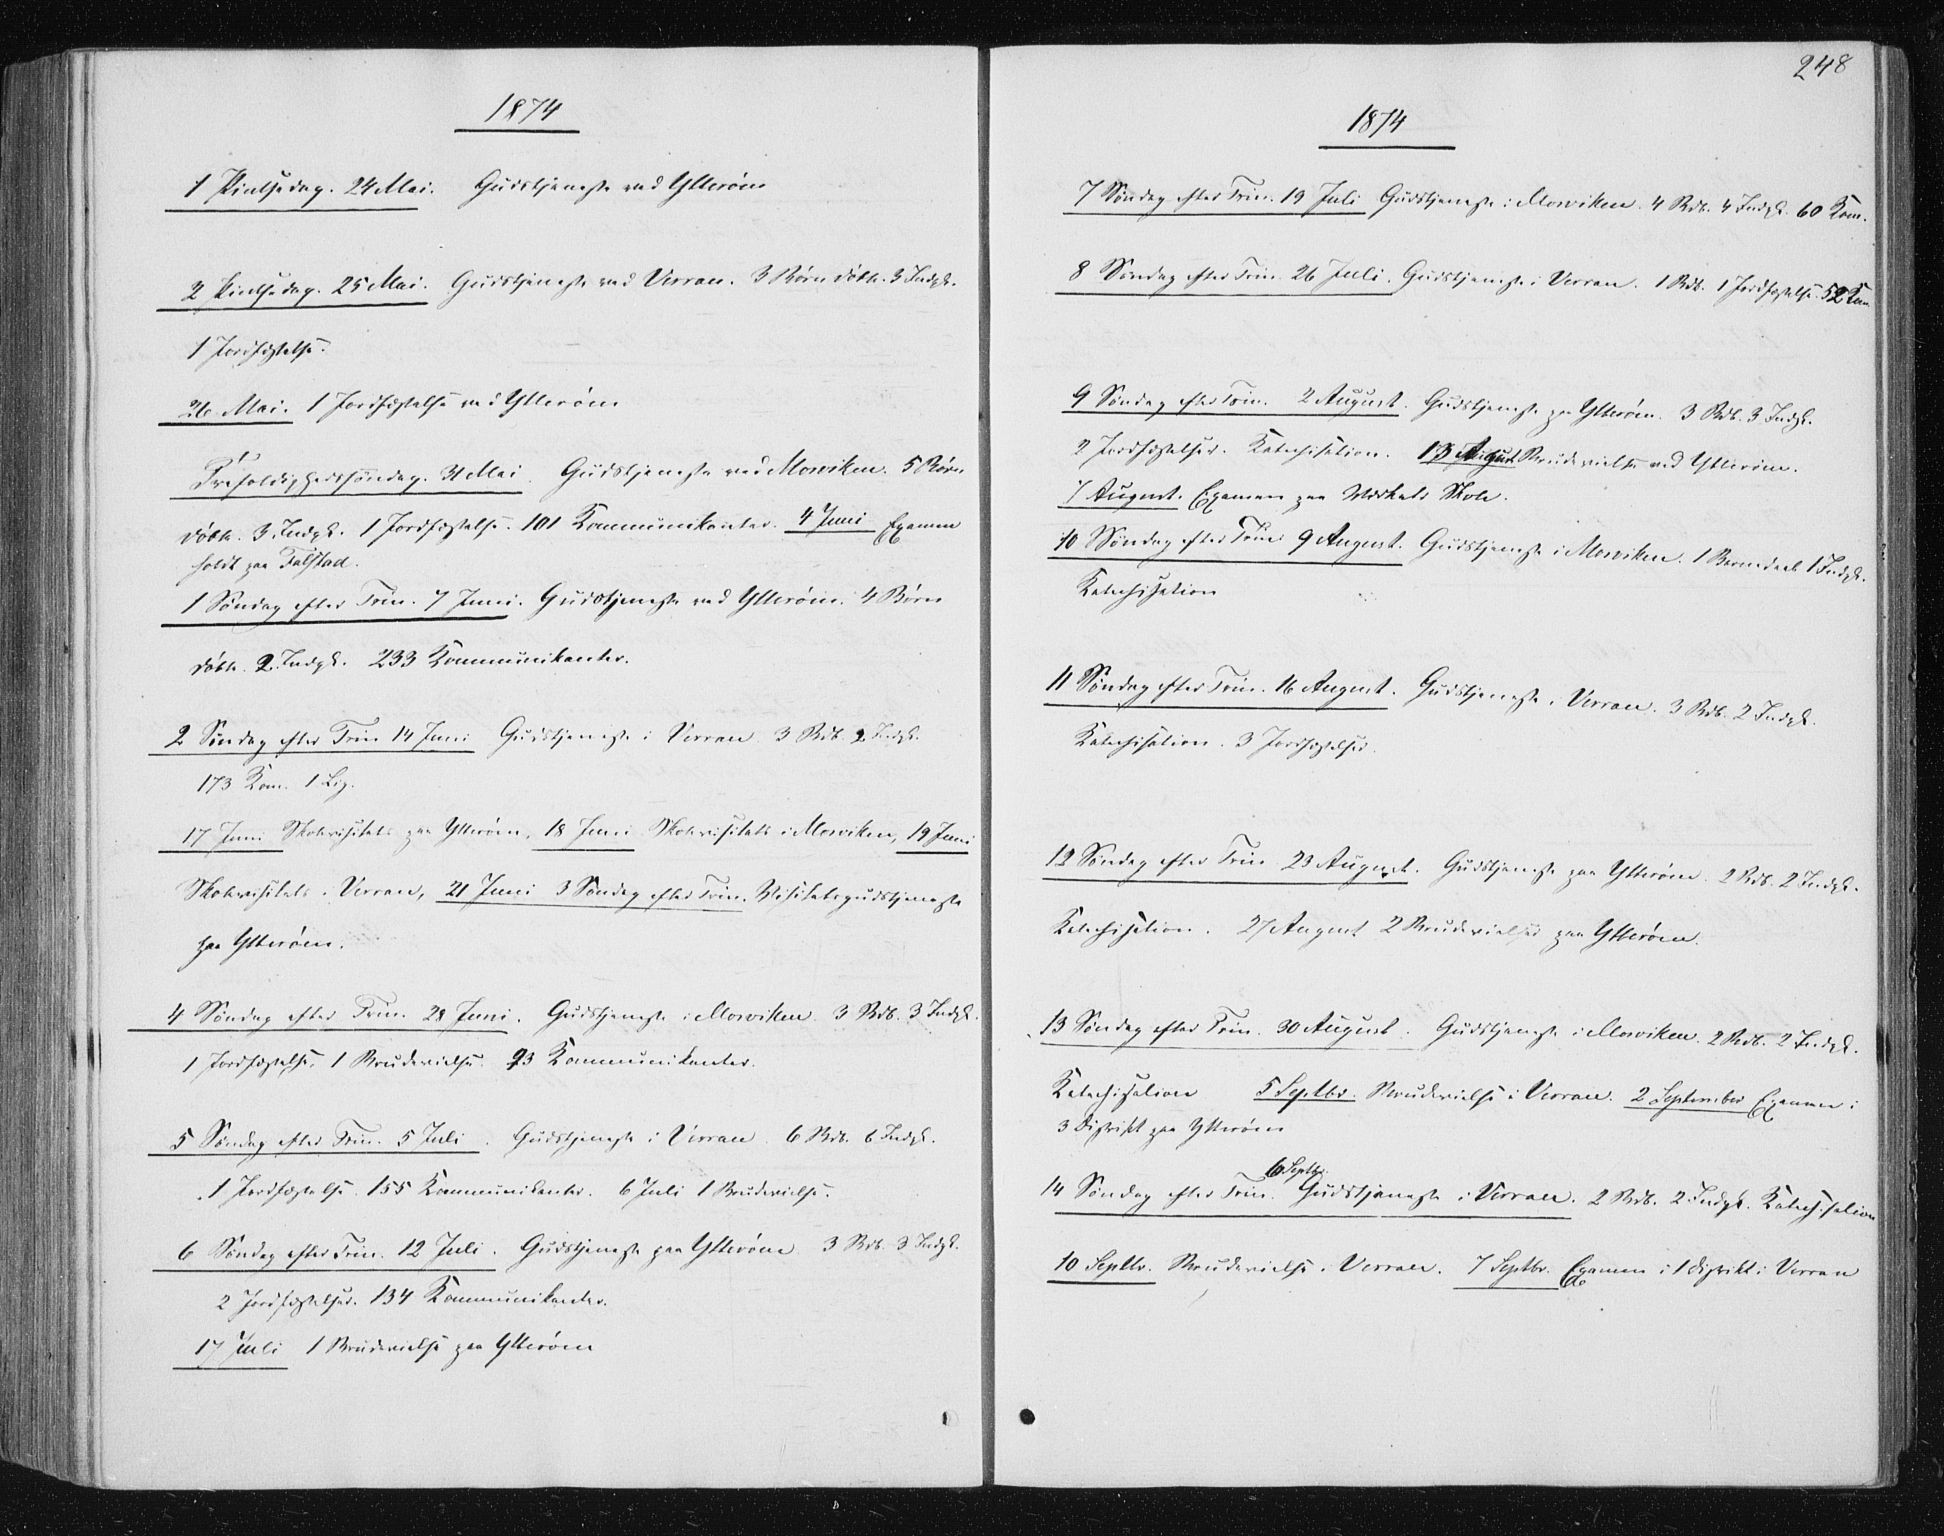 1874
1 Pintsedag. 24 Mai. Gudstjeneste ved Ytterøen
2 Pintsedag. 25 Mai. Gudstjeneste ved Verran. 3 Børn døbte. 3 Indgk.
1 Jordfæstelse.
26 Mai. 1 Jordfæstelse ved Ytterøen
Trefoldighedssøndag. 31 Mai. Gudstjeneste ved Mosviken. 5 Børn
døbte. 3 Indgk. 1 Jordfæstelse. 101 Kommunikanter. 4 Juni Examen
holdt paa Falstad.
1 Søndag efter Trin. 7 Juni. Gudstjeneste ved Ytterøen. 4 Børn
døbte. 2 Indgk. 233 Kommunikanter.
2 Søndag efter Trin 14 Juni Gudstjeneste i Verran 3 Bdb. 2 Indgk.
173 Kom. 1 Lig.
17 Juni Skolevisitats paa Ytterøen, 18 Juni Skolevisitats i Mosviken, 19 Juni
Skolevisitats i Verran, 21 Juni 3 Søndag efter Trin. Visitatsgudstjeneste
paa Ytterøen.
4 Søndag efter Trin. 28 Juni. Gudstjeneste i Mosviken 3 Bdb. 3 Indgk.
1 Jordfæstelse, 1 Brudevielse. 93 Kommunikanter.
5 Søndag efter Trin. 5 Juli. Gudstjeneste i Verran 6 Bdb. 6 Indgk.
1 Jordfæstelse. 155 Kommunikanter. 6 Juli 1 Brudevielse.
6 Søndag efter Trin. 12 Juli. Gudstjeneste paa Ytterøen 3 Bdb. 3 Indgk.
2 Jordfæstelser. 134 Kommunikanter.
17 Juli 1 Brudevielse paa Ytterøen
248
1874
7 Søndag efter Trin. 19 Juli Gudstjeneste i Mosviken. 4 Bdb. 4 Indgk. 60 Kom.
8 Søndag efter Trin. 26 Juli. Gudstjeneste i Verran. 1 Bdb. 1 Jordfæstelse. 52 Kom.
9 Søndag efter Trin. 2 August. Gudstjeneste paa Ytterøen. 3 Bdb. 3 Indgk.
2 Jordfæstelser. Katechisation. 13 August Brudevielse ved Ytterøen.
7 August. Examen paa Skole.
10 Søndag efter Trin 9 August. Gudstjeneste i Mosviken. 1 Barnedaab 1 Indgk.
Katechisation
11 Søndag efter Trin. 16 August. Gudstjeneste i Verran. 3 Bdb. 2 Indgk.
Katechisation. 3 Jordfæstelser.
12 Søndag efter Trin 23 August. Gudstjeneste paa Ytterøen. 2 Bdb. 2 Indgk.
Katechisation. 27 August 2 Brudevielser paa Ytterøen.
13 Søndag efter Trin. 30 August. Gudstjeneste i Mosviken. 2 Bdb. 2 Indgk.
Katechisation 5 Septbr. Brudevielse i Verran. 2 September Examen i
3 Distrikt paa Ytterøen
6 Septbr.
14 Søndag efter Trin. Gudstjeneste i Verran. 2 Bdb. 2 Indgk. Katechisation
10 Septbr. Brudevielse i Verran. 7 Septbr. Examen i 1 Distrikt i Verran